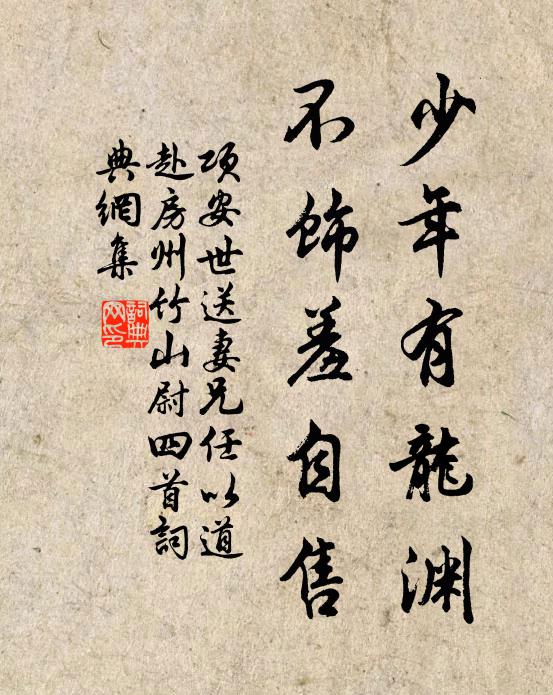 少年有龍渊
不飾羞自售
项安世送妻兄任以道
赴房州竹山尉四首詞
典網集
詞典网印